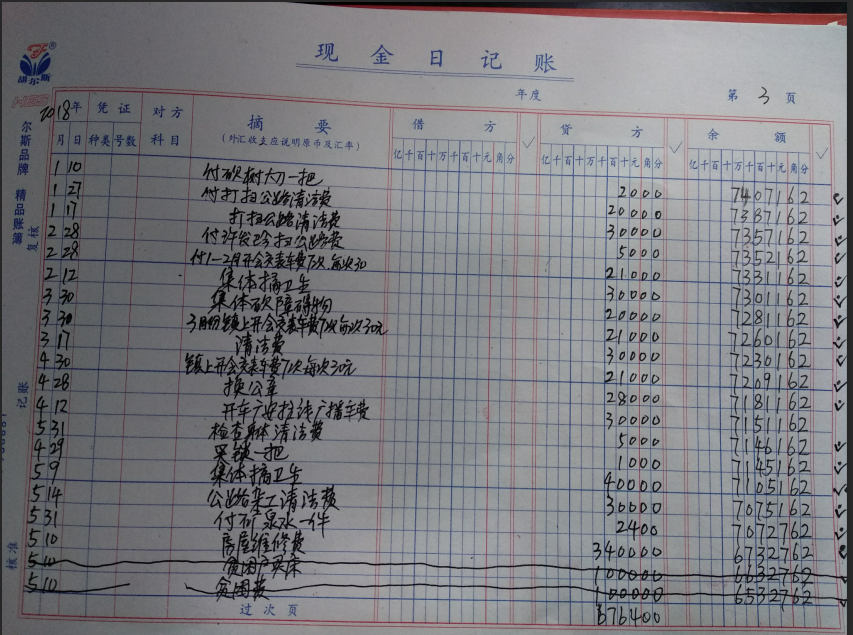 胡尔斯
HES
现金日记账
年度
第 3 页
2018年 凭证 对方 摘要 借方 √ 贷方 √ 余额 √
月 日 种类 号数 科目 (外汇收支应说明原币及汇率) 亿千百十万千百十元角分 亿千百十万千百十元角分 亿千百十万千百十元角分
1 10 付砍树大刀一把 2000 7407162
1 27 付打扫公路清洁费 20000 7387162
1 17 打扫公路清洁费 30000 7357162
2 28 付许发珍扫公路费 5000 7352162
2 28 付1-2月开会交表车费7次每次30 21000 7331162
2 12 集体搞卫生 30000 7301162
3 30 集体砍障碍物 20000 7281162
3 30 3月份镇上开会交表车费7次每次30元 21000 7260162
3 17 清洁费 30000 7230162
4 30 镇上开会交表车费7次每次30元 21000 7209162
4 28 换公章 28000 7181162
4 12 开车广安拉线广播车费 30000 7151162
5 31 检查身体清洁费 5000 7146162
4 29 买锁一把 1000 7145162
5 9 集体搞卫生 40000 7105162
5 14 公路杂工清洁费 30000 7075162
5 31 付矿泉水一件 2400 7072762
5 10 房屋维修费 340000 6732762
5 10 贫困户买床 100000 6632762
5 10 贫困费 100000 6532762
过次页 676400
尔斯品牌 精品账簿
复核
记账
核准